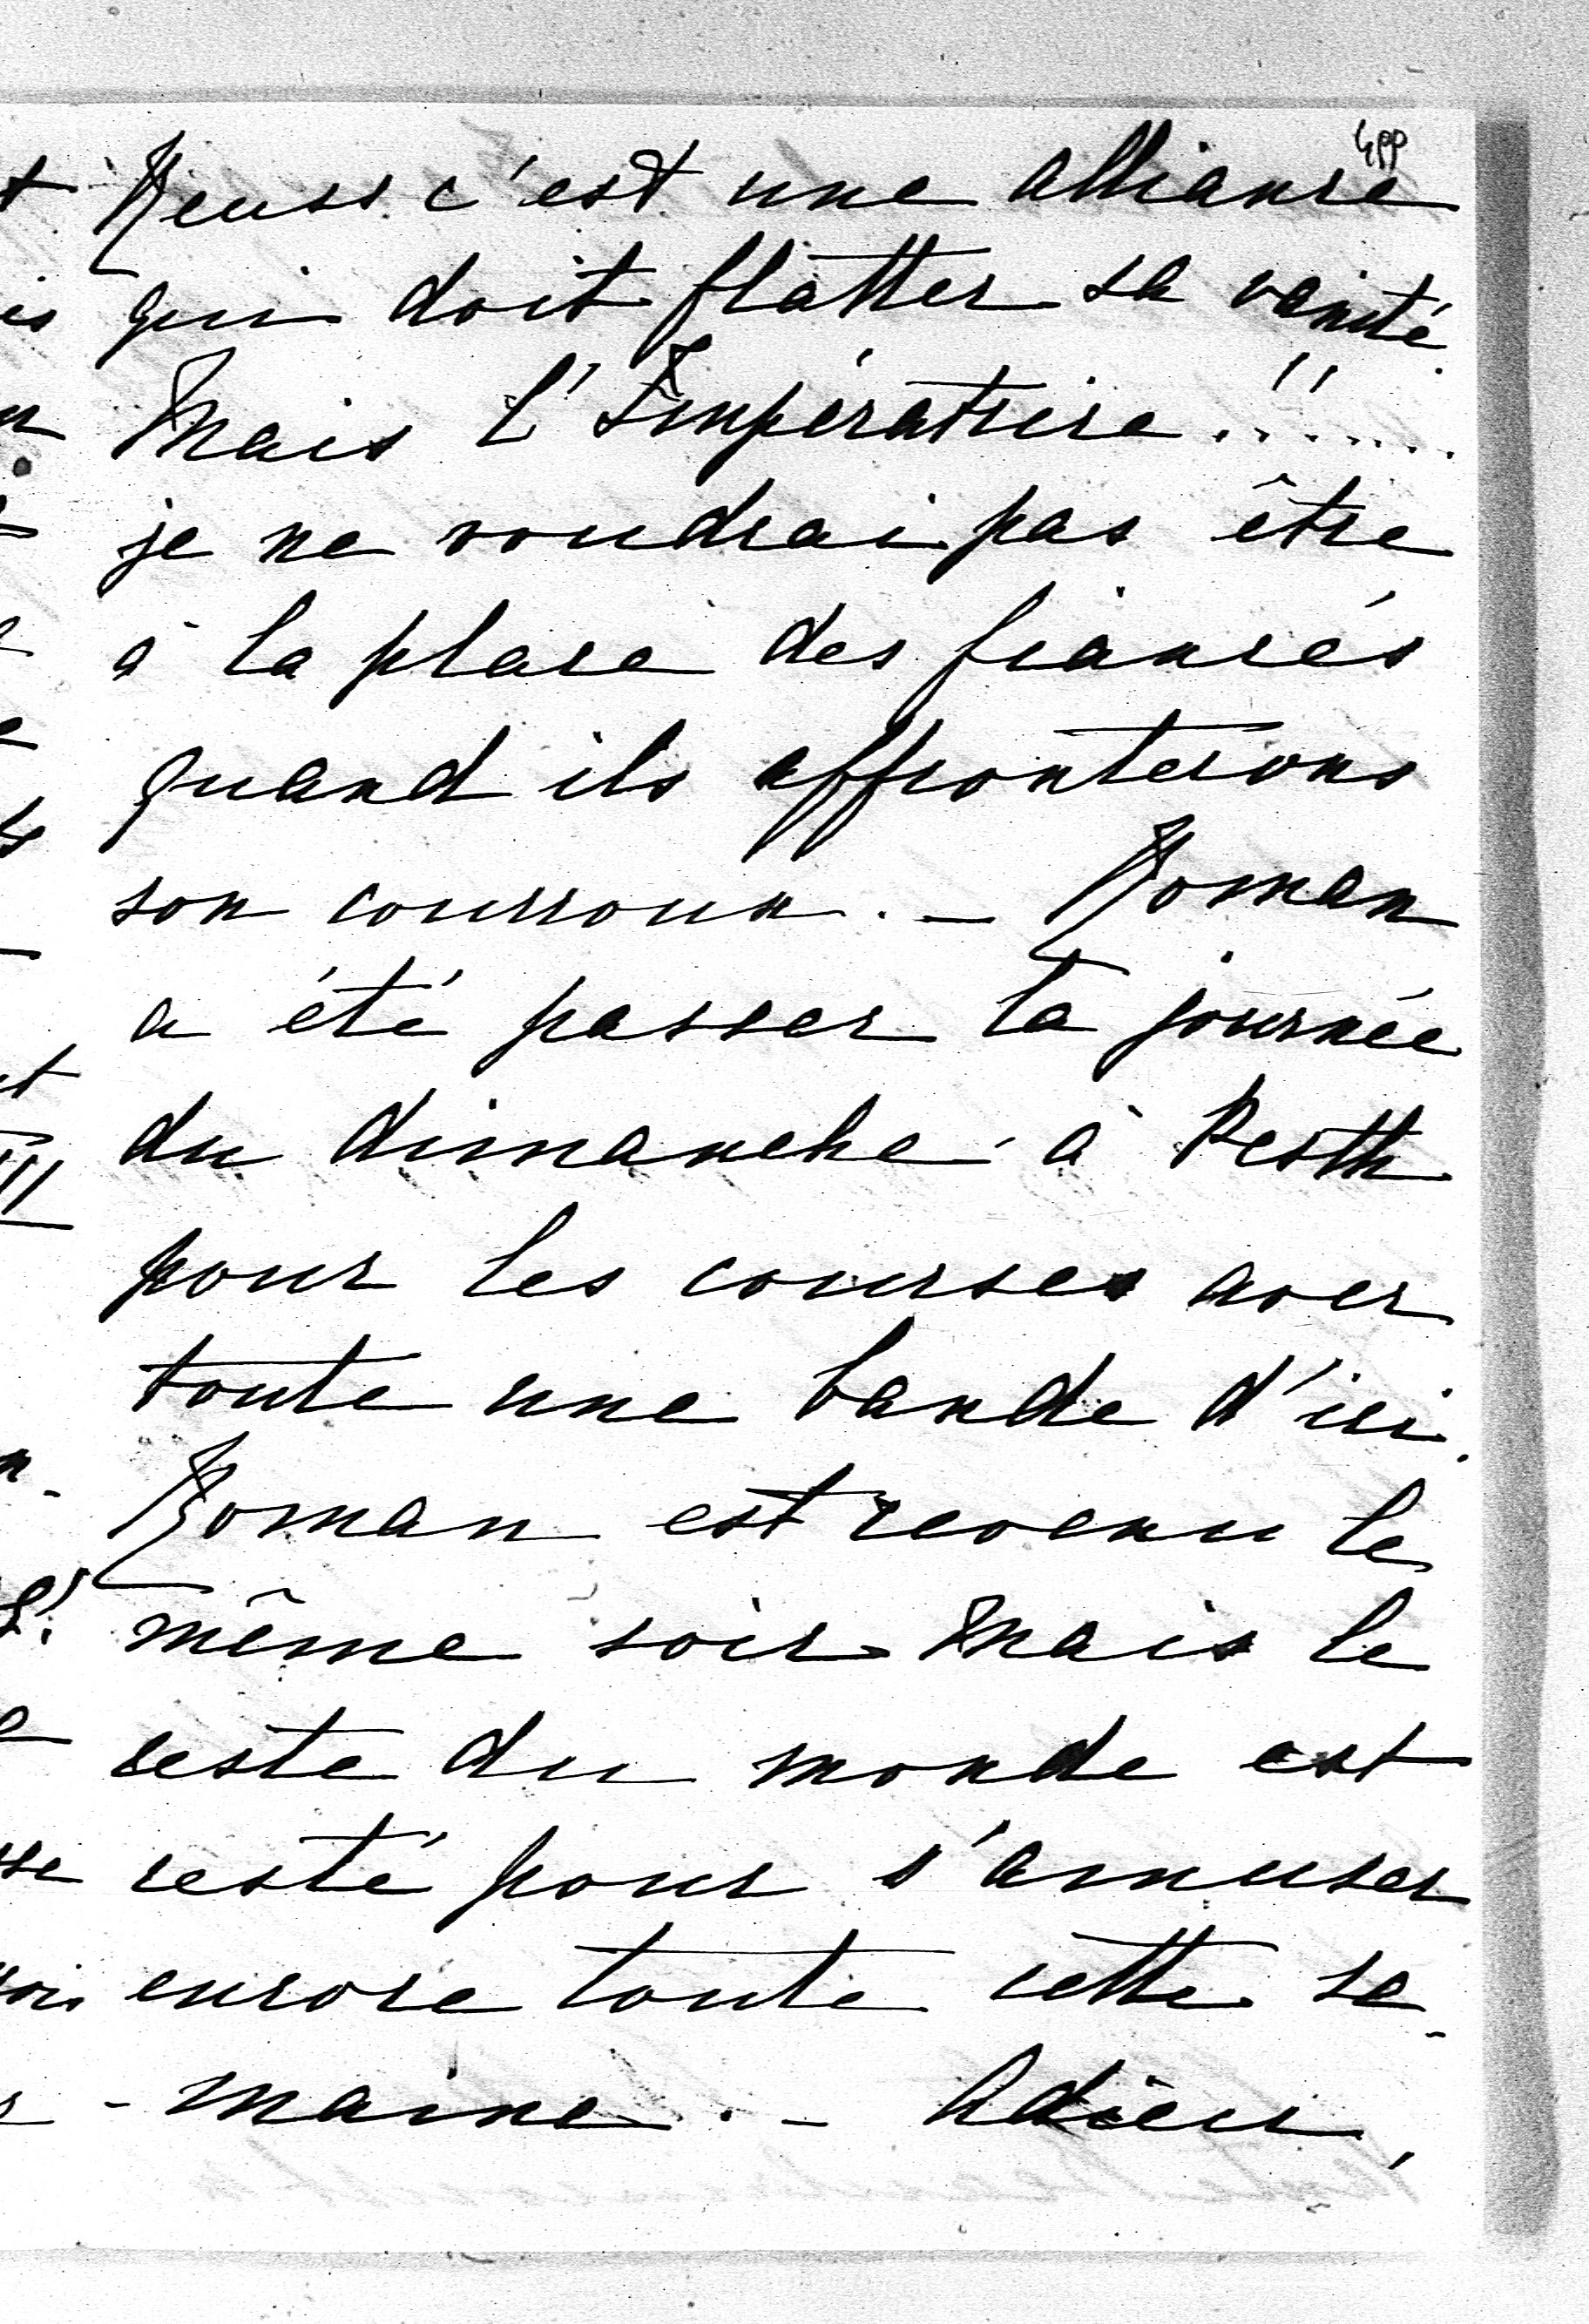 4pp
Reuss c'est une alliance
qui doit flatter sa vanité.
Mais l'Impératrice !!......
je ne voudrai pas être
à la place des fiancés
quand ils affronterons
son courroux. — Roman
a été passer la journée
du dimanche à Pesth
pour les courses avec
toute une bande d'ici.
Roman est revenu le
même soir mais le
reste du monde est
resté pour s'amuser
encore toute cette se-
-maine. — Adieu,